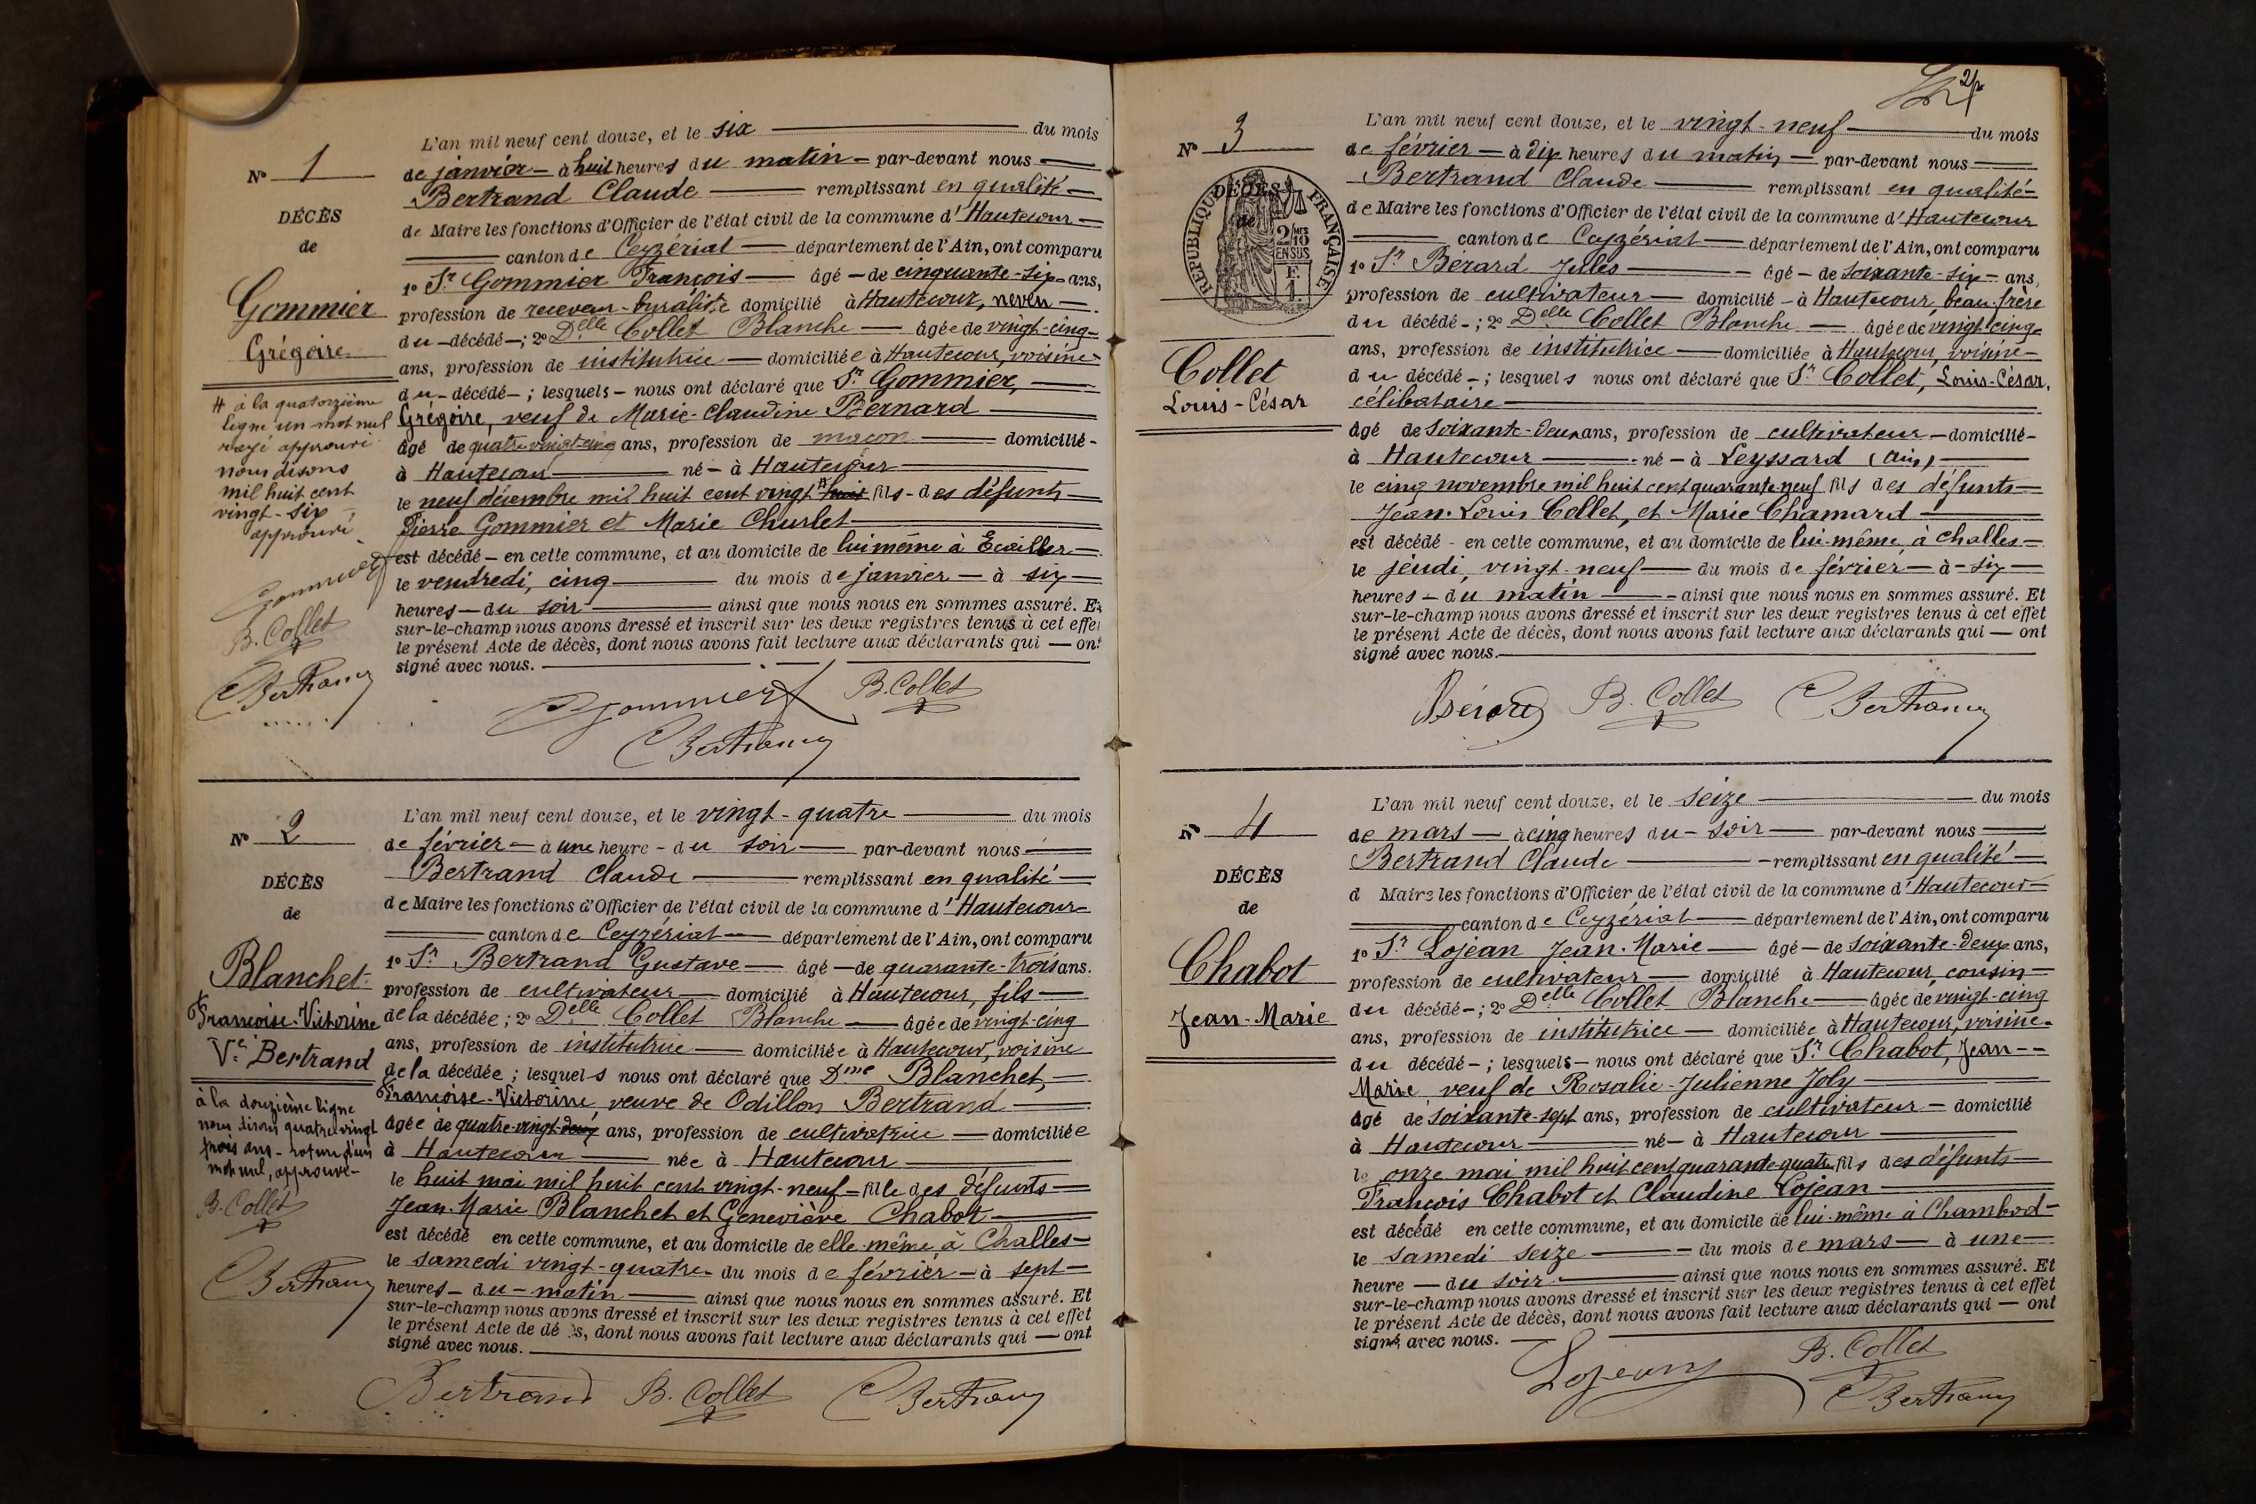 N° 1
DÉCÈS
de
Gommier
Grégoire
# à la quatorzième
ligne un mot nul
rayé approuvé
nous disons
mil huit cent
vingt-six
approuvé.
Gommier
B. Collet
C Bertrand
L'an mil neuf cent douze, et le six du mois
de janvier à huit heures du matin par-devant nous
Bertrand Claude remplissant en qualité
de Maire les fonctions d'Officier de l'état civil de la commune d'Hautecour
canton de Ceyzériat département de l'Ain, ont comparu
1° Sr Gommier François âgé de cinquante-six ans,
profession de receveur-buraliste domicilié à Hautecour, neveu
du décédé; 2° Delle Collet Blanche âgée de vingt-cinq
ans, profession de institutrice domiciliée à Hautecour, voisine
du décédé; lesquels nous ont déclaré que Sr Gommier,
Grégoire, veuf de Marie-Claudine Bernard
âgé de quatre-vingt-cinq ans, profession de maçon domicilié
à Hautecour né à Hautecour
le neuf décembre mil huit cent vingt # huit fils des défunts
Pierre Gommier et Marie Churlet
est décédé en cette commune, et au domicile de lui même à Ecuiller
le vendredi, cinq du mois de janvier à six
heures du soir ainsi que nous nous en sommes assuré. Et
sur-le-champ nous avons dressé et inscrit sur les deux registres tenus à cet effet
le présent Acte de décès, dont nous avons fait lecture aux déclarants qui ont
signé avec nous.
Gommier B. Collet
C Bertrand
N° 2
DÉCÈS
de
Blanchet
Françoise-Victorine
Ve Bertrand
à la douzième ligne
nous disons quatre-vingt
trois ans - rature d'un
mot nul, approuvé-
B. Collet
C Bertrand
L'an mil neuf cent douze, et le vingt-quatre du mois
de février à une heure du soir par-devant nous
Bertrand Claude remplissant en qualité
de Maire les fonctions d'Officier de l'état civil de la commune d'Hautecour
canton de Ceyzériat département de l'Ain, ont comparu
1° Sr Bertrand Gustave âgé de quarante-trois ans.
profession de cultivateur domicilié à Hautecour, fils
de la décédée; 2° Delle Collet Blanche âgée de vingt-cinq
ans, profession de institutrice domiciliée à Hautecour, voisine
de la décédée; lesquels nous ont déclaré que Dme Blanchet,
Françoise-Victorine, veuve de Odillon Bertrand
âgée de quatre-vingt-deux ans, profession de cultivatrice domiciliée
à Hautecour née à Hautecour
le huit mai mil huit cent vingt-neuf fille des défunts
Jean-Marie Blanchet et Geneviève Chabot
est décédé en cette commune, et au domicile de elle-même, à Challes
le samedi vingt-quatre du mois de février à sept
heures du matin ainsi que nous nous en sommes assuré. Et
sur-le-champ nous avons dressé et inscrit sur les deux registres tenus à cet effet
le présent Acte de décès, dont nous avons fait lecture aux déclarants qui ont
signé avec nous.
Bertrand B. Collet C Bertrand
2
N° 3
DÉCÈS
de
RÉPUBLIQUE FRANÇAISE
2/10 mes
EN SUS
F.
1.
Collet
Louis-César
L'an mil neuf cent douze, et le vingt-neuf du mois
de février à dix heures du matin par-devant nous
Bertrand Claude remplissant en qualité
de Maire les fonctions d'Officier de l'état civil de la commune d'Hautecour
canton de Ceyzériat département de l'Ain, ont comparu
1° Sr Bérard Jules âgé de soixante-six ans,
profession de cultivateur domicilié à Hautecour, beau-frère
du décédé; 2° Delle Collet Blanche âgée de vingt-cinq
ans, profession de institutrice domiciliée à Hautecour, voisine
du décédé; lesquels nous ont déclaré que Sr Collet, Louis-César,
célibataire
âgé de soixante-deux ans, profession de cultivateur domicilié
à Hautecour né à Leyssard (Ain)
le cinq novembre mil huit cent quarante-neuf fils des défunts
Jean-Louis Collet, et Marie Chamard
est décédé en cette commune, et au domicile de lui-même, à Challes
le jeudi, vingt-neuf du mois de février à six
heures du matin ainsi que nous nous en sommes assuré. Et
sur-le-champ nous avons dressé et inscrit sur les deux registres tenus à cet effet
le présent Acte de décès, dont nous avons fait lecture aux déclarants qui ont
signé avec nous.
Bérard B. Collet C Bertrand
N° 4
DÉCÈS
de
Chabot
Jean-Marie
L'an mil neuf cent douze, et le seize du mois
de mars à cinq heures du soir par-devant nous
Bertrand Claude remplissant en qualité
d Maire les fonctions d'Officier de l'état civil de la commune d'Hautecour
canton de Ceyzériat département de l'Ain, ont comparu
1° Sr Lojean Jean-Marie âgé de soixante-deux ans,
profession de cultivateur domicilié à Hautecour, cousin
du décédé; 2° Delle Collet Blanche âgée de vingt-cinq
ans, profession de institutrice domiciliée à Hautecour, voisine
du décédé; lesquels nous ont déclaré que Sr Chabot, Jean-
Marie, veuf de Rosalie-Julienne Joly
âgé de soixante-sept ans, profession de cultivateur domicilié
à Hautecour né à Hautecour
le onze mai mil huit cent quarante-quatre fils des défunts
François Chabot et Claudine Lojean
est décédé en cette commune, et au domicile de lui-même à Chambod
le samedi seize du mois de mars à une
heure du soir ainsi que nous nous en sommes assuré. Et
sur-le-champ nous avons dressé et inscrit sur les deux registres tenus à cet effet
le présent Acte de décès, dont nous avons fait lecture aux déclarants qui ont
signé avec nous.
Lojean B. Collet
C Bertrand